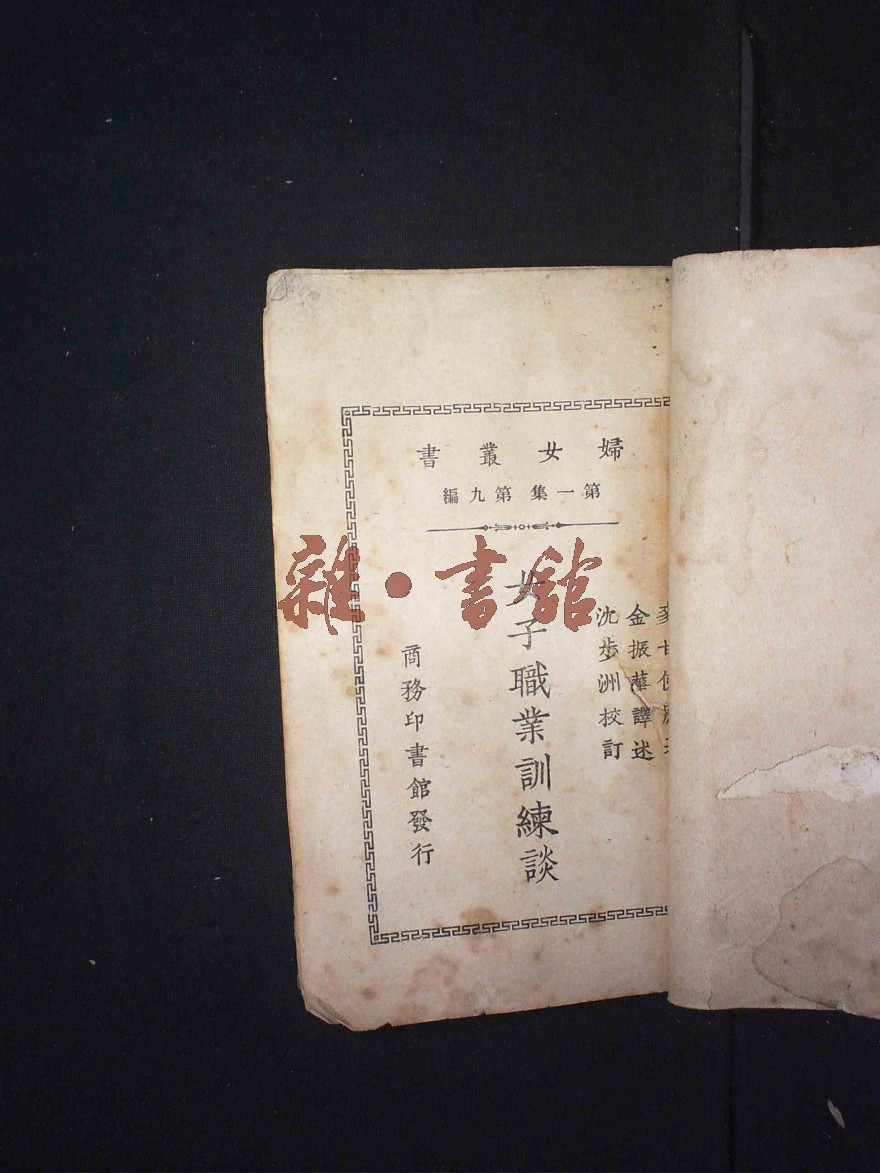 婦女叢書
第一集第九編
金振華譯述
沈步洲校訂
女子職業訓練談
商務印書館發行
雜·書館